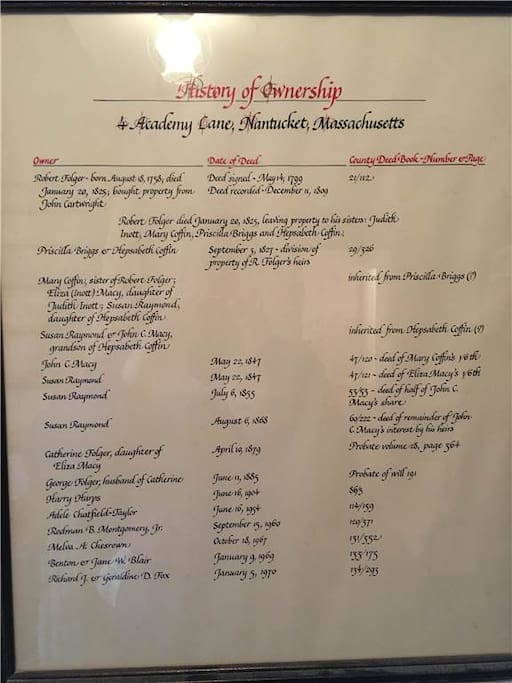 History of Ownership
4 Academy Lane, Nantucket, Massachusetts
Owner Date of Deed County Deed Book - Number & Page
Robert Folger - born August 18, 1758; died Deed signed - May 14, 1799 21/112
January 20, 1825; bought property from Deed recorded - December 11, 1809
John Cartwright
Robert Folger died January 20, 1825, leaving property to his sisters: Judith
Inott, Mary Coffin, Priscilla Briggs and Hepsabeth Coffin.
Priscilla Briggs & Hepsabeth Coffin September 3, 1827 - division of 29/326
property of R. Folger's heirs
Mary Coffin, sister of Robert Folger; inherited from Priscilla Briggs (?)
Eliza (Inott) Macy, daughter of
Judith Inott; Susan Raymond,
daughter of Hepsabeth Coffin
Susan Raymond & John C. Macy, inherited from Hepsabeth Coffin (?)
grandson of Hepsabeth Coffin
John C. Macy May 22, 1847 47/120 - deed of Mary Coffin's 1/6th
Susan Raymond May 22, 1847 47/121 - deed of Eliza Macy's 1/6th
Susan Raymond July 6, 1855 53/53 - deed of half of John C.
Macy's share
Susan Raymond August 6, 1868 60/222 - deed of remainder of John
C. Macy's interest by his heirs
Catherine Folger, daughter of April 10, 1879 Probate volume 28, page 364
Eliza Macy
George Folger, husband of Catherine June 11, 1885 Probate of will 191
Harry Harps June 16, 1904 865
Adele Chatfield-Taylor June 16, 1954 114/159
Rodman B. Montgomery, Jr. September 15, 1960 120/371
Melva A. Chesrown October 18, 1967 131/552
Benton & Jane W. Blair January 9, 1969 133/175
Richard J. & Geraldine D. Fox January 5, 1970 134/293